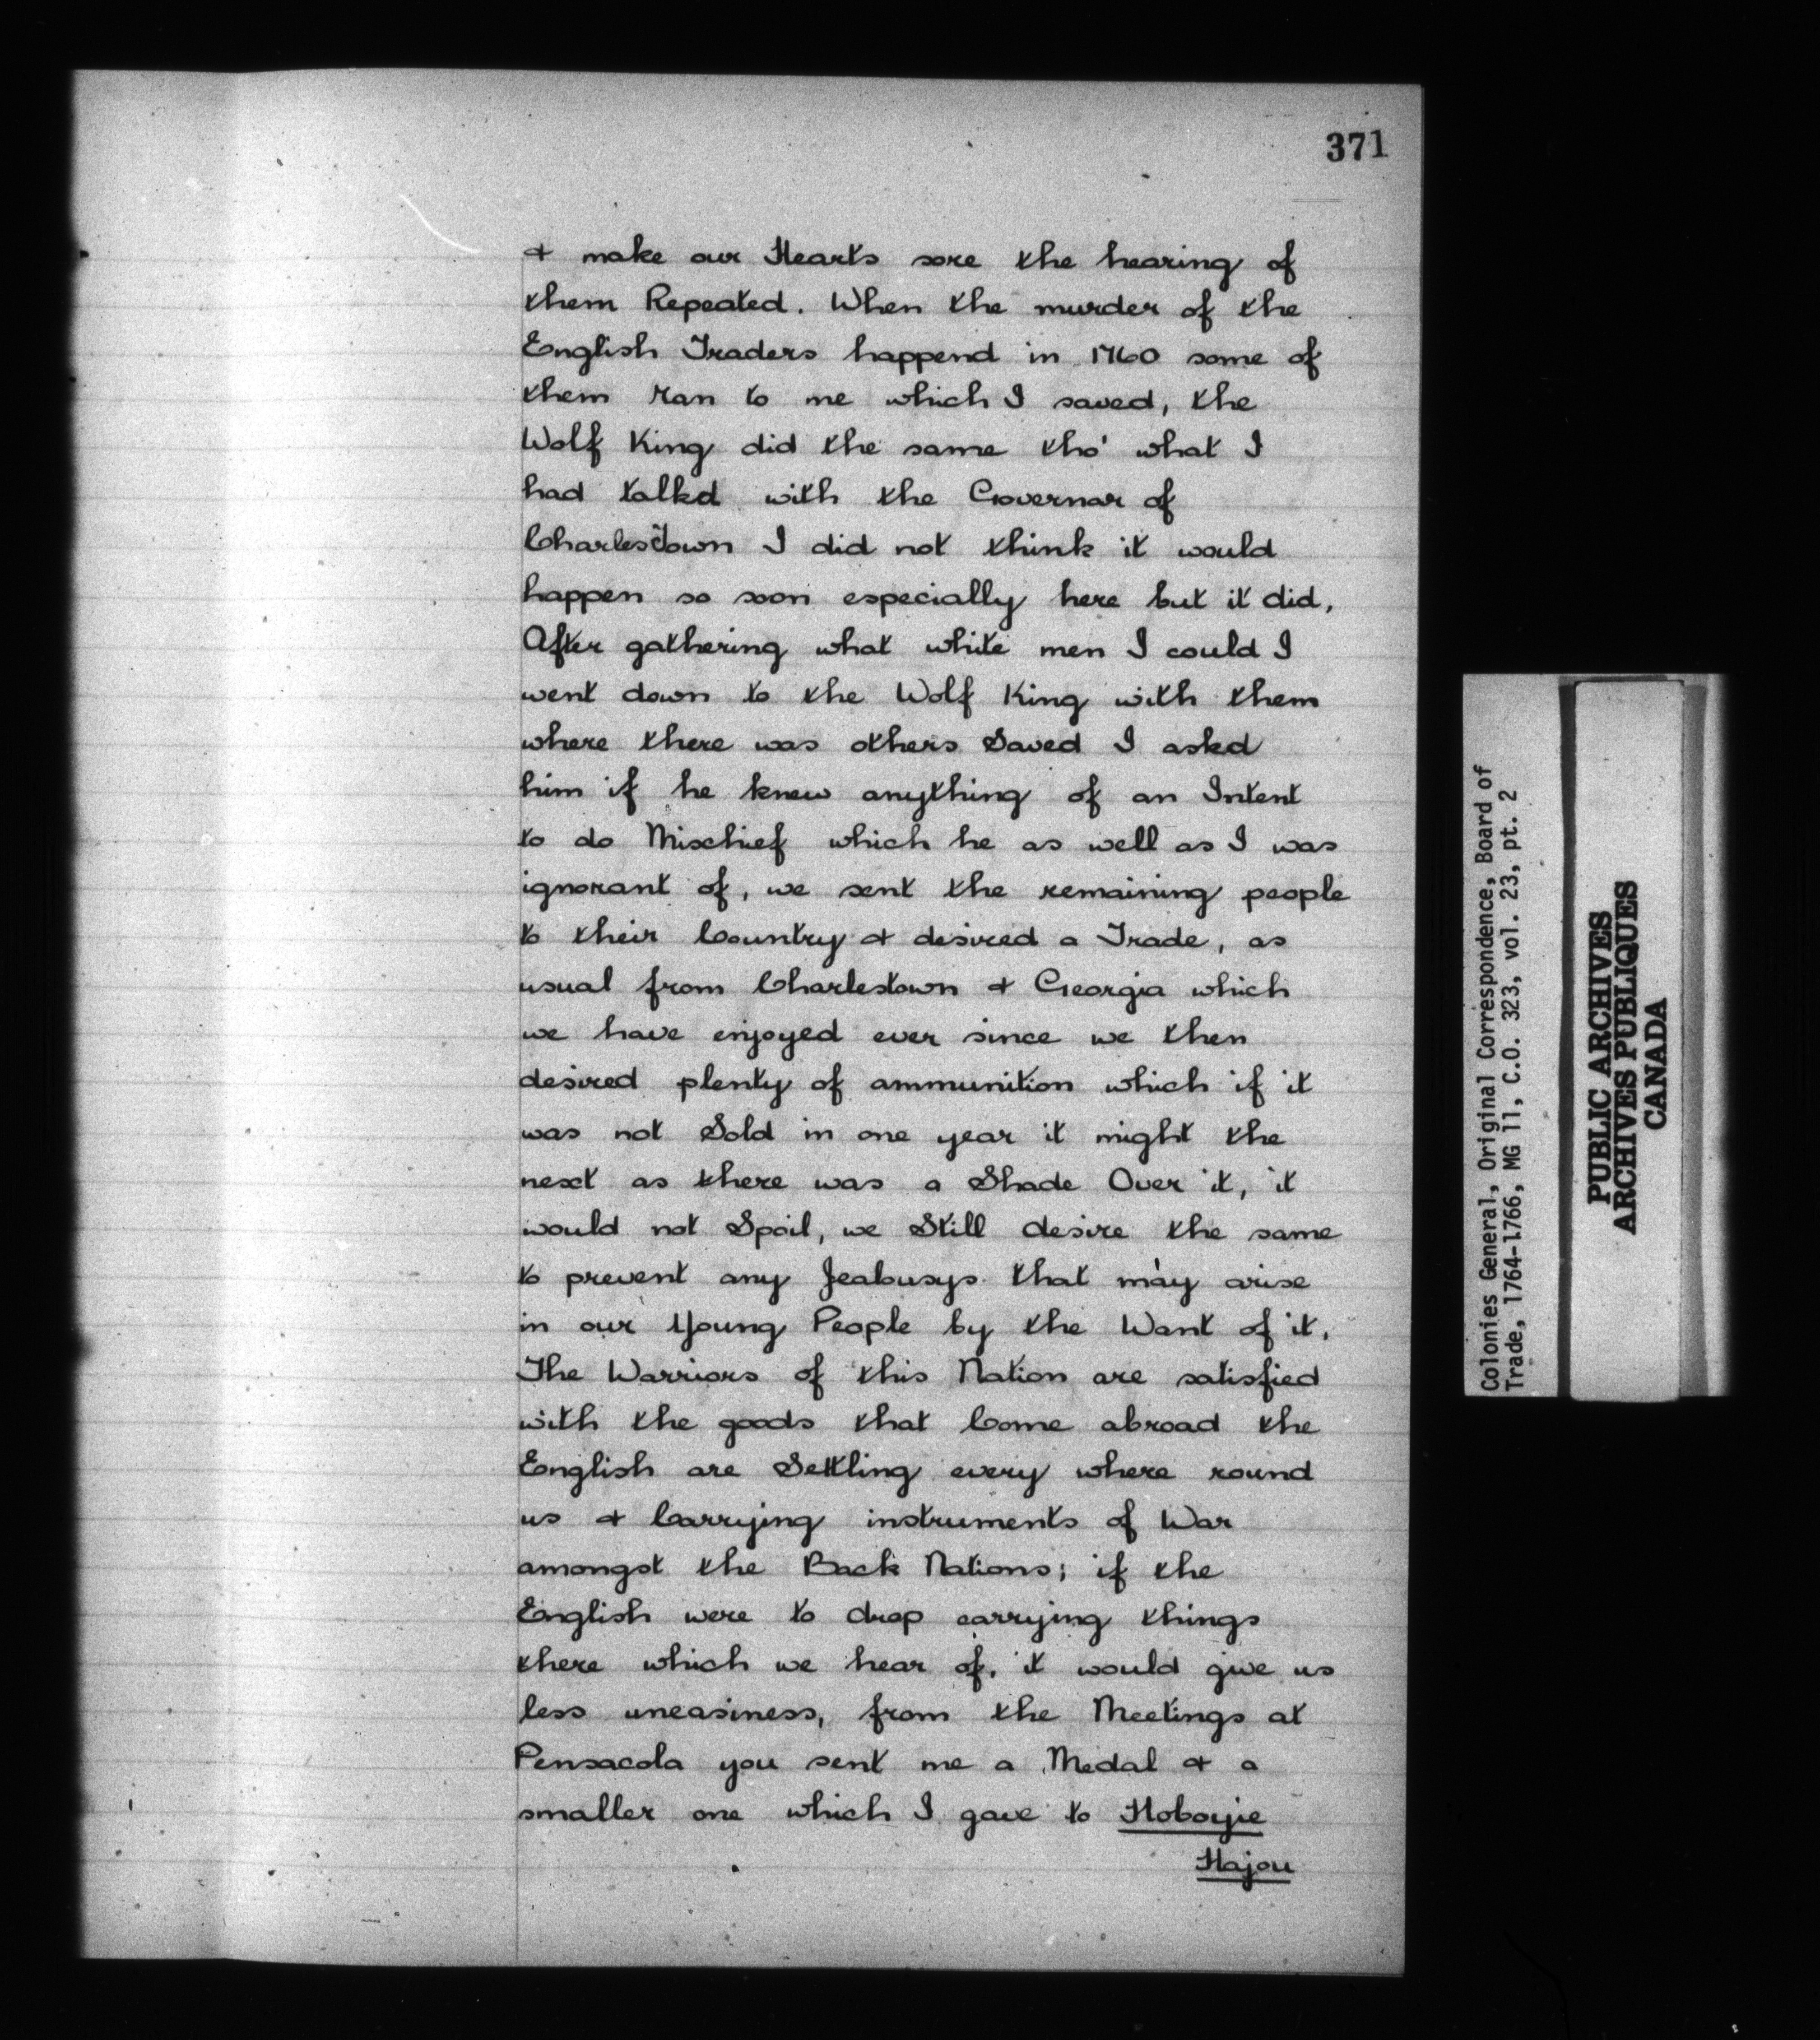 371
& make our Hearts sore the hearing of
them Repeated. When the murder of the
English Traders happend in 1760 some of
them Ran to me which I saved, the
Wolf King did the same tho' what I
had talkd with the Governar of
Charlestown I did not think it would
happen so soon especially here but it did,
After gathering what white men I could I
went down to the Wolf King with them
where there was others Saved I asked
him if he knew anything of an Intent
to do Mischief which he as well as I was
ignorant of, we sent the remaining people
to their Country & desired a Trade, as
usual from Charlestown & Georgia which
we have enjoyed ever since we then
desired plenty of ammunition which if it
was not Sold in one year it might the
next as there was a Shade Over it, it
would not Spoil, we Still desire the same
to prevent any Jealousys that may arise
in our Young People by the Want of it.
The Warriors of this Nation are satisfied
with the goods that Come abroad the
English are Settling every where round
us & Carrying instruments of War
amongst the Back Nations; if the
English were to drop carrying things
there which we hear of, it would give us
less uneasiness, from the Meetings at
Pensacola you sent me a Medal & a
smaller one which I gave to Hoboyie
Hajou
Colonies General, Original Correspondence, Board of
Trade, 1764-1766, MG 11, C.O. 323, vol. 23, pt. 2
PUBLIC ARCHIVES
ARCHIVES PUBLIQUES
CANADA